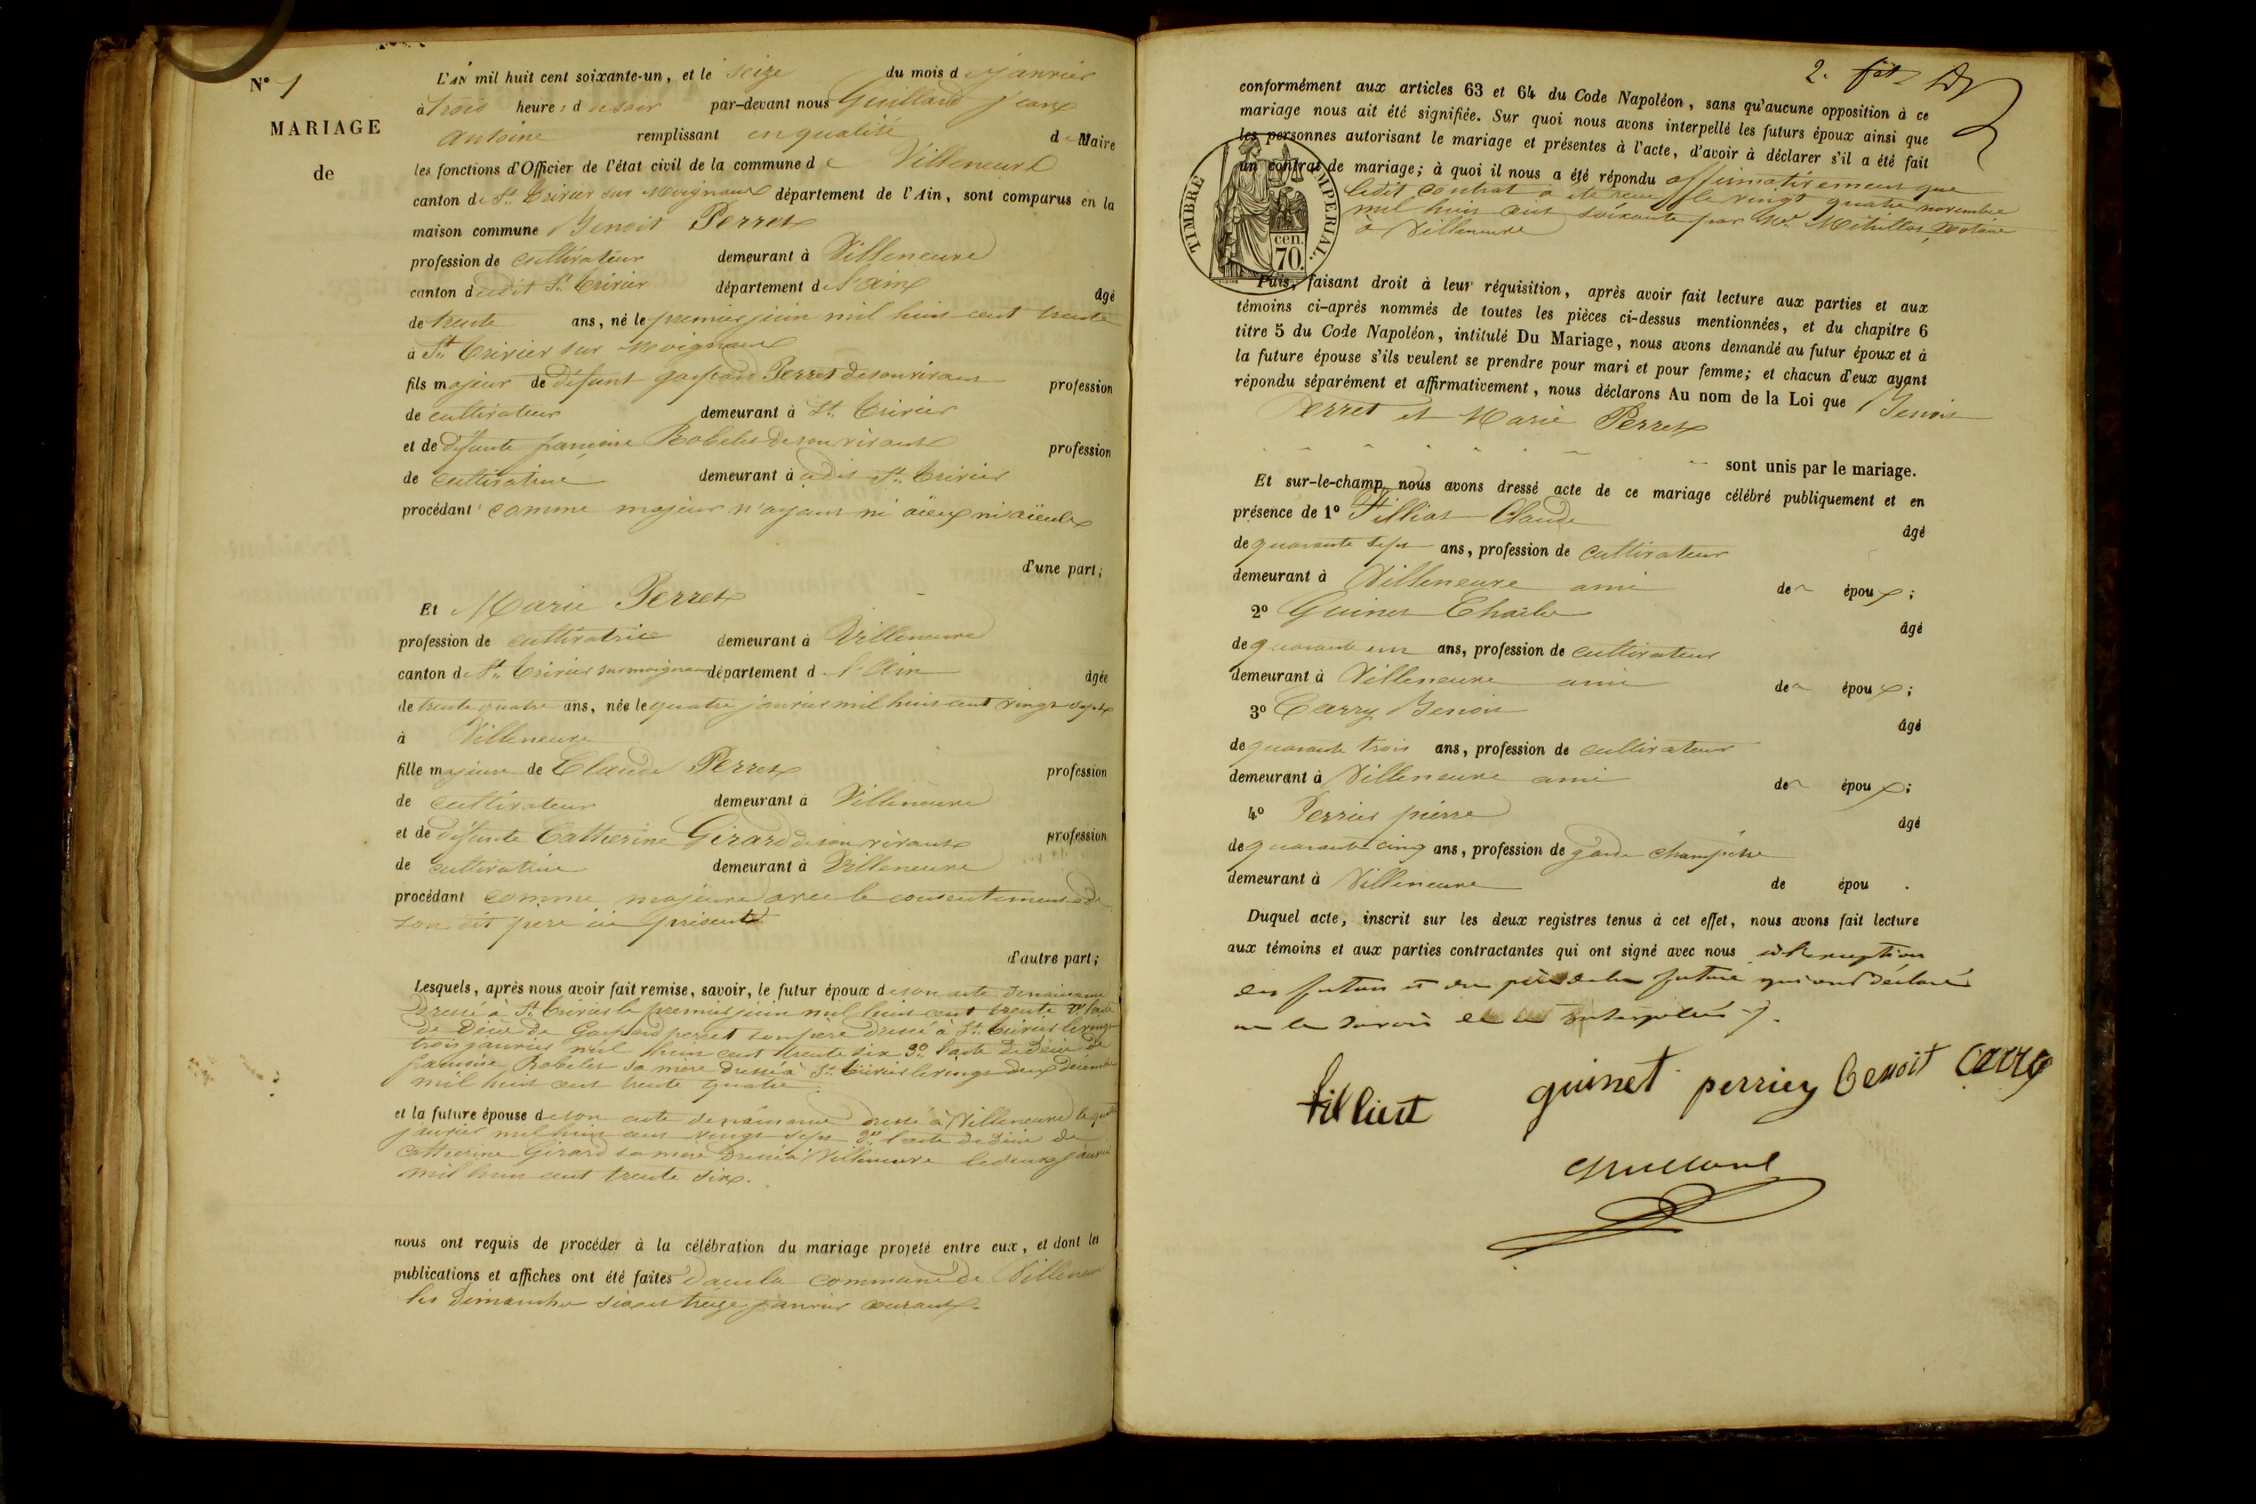 N° 1
MARIAGE
de
L'AN mil huit cent soixante-un, et le seize du mois de janvier
à trois heures du soir par-devant nous Guillard Jean
antoine remplissant en qualité de Maire
les fonctions d'Officier de l'état civil de la commune de Villeneuve
canton de St. Trivier sur moignans département de l'Ain, sont comparus en la
maison commune Benoit Perret
profession de cultivateur demeurant à Villeneuve
canton dudit St. Trivier département de l'ain âgé
de trente ans, né le premier juin mil huit cent trente
à St Trivier sur moignans
fils majeur de défunt gaspard Perret de son vivant profession
de cultivateur demeurant à St. Trivier
et de défunte françoise Robelet de son vivant profession
de cultivatrice demeurant à audit St. Trivier
procédant comme majeur n'ayant ni aieux ni aïeules
d'une part;
Et Marie Perret
profession de cultivatrice demeurant à Villeneuve
canton de St. Trivier sur moignans département de l'Ain âgée
de trente quatre ans, née le quatre janvier mil huit cent vingt sept
à Villeneuve
fille majeure de Claude Perret profession
de cultivateur demeurant à Villeneuve
et de défunte Catherine Girard de son vivant profession
de cultivatrice demeurant à Villeneuve
procédant comme majeure avec le consentement de
son dit père ici présent
d'autre part;
Lesquels, après nous avoir fait remise, savoir, le futur époux de son acte de naissance
Dressé à St. Trivier le premier juin mil huit cent trente 2° l'acte
de Décès de Gaspard perret son père dressé à St. Trivier le vingt
trois janvier mil huit cent trente six 3° l'acte de Décès de
françoise Robelet sa mère Dressé à St. Trivier le vingt deux Décembre
mil huit cent trente quatre.
et la future épouse de son acte de naissance dressé à Villeneuve le quatre
janvier mil huit cent vingt sept 2° l'acte de Décès de
Catherine Girard sa mère Dressé à Villeneuve le deux janvier
mil huit cent trente six.
nous ont requis de procéder à la célébration du mariage projeté entre eux, et dont les
publications et affiches ont été faites dans la commune de Villeneuve
les Dimanches six et treize janvier courant.
2.
conformément aux articles 63 et 64 du Code Napoléon, sans qu'aucune opposition à ce
mariage nous ait été signifiée. Sur quoi nous avons interpellé les futurs époux ainsi que
les personnes autorisant le mariage et présentes à l'acte, d'avoir à déclarer s'il a été fait
un contrat de mariage; à quoi il nous a été répondu affirmativement que
ledit contrat a été reçu le vingt quatre novembre
mil huit cent soixante par Me. notaire
à Villeneuve
TIMBRE IMPERIAL.
cen.
70.
Puis, faisant droit à leur réquisition, après avoir fait lecture aux parties et aux
témoins ci-après nommés de toutes les pièces ci-dessus mentionnées, et du chapitre 6
titre 5 du Code Napoléon, intitulé Du Mariage, nous avons demandé au futur époux et à
la future épouse s'ils veulent se prendre pour mari et pour femme; et chacun d'eux ayant
répondu séparément et affirmativement, nous déclarons Au nom de la Loi que Benoit
Perret et Marie Perret
sont unis par le mariage.
Et sur-le-champ nous avons dressé acte de ce mariage célébré publiquement et en
présence de 1° Filliat Claude âgé
de quarante sept ans, profession de cultivateur
demeurant à Villeneuve ami des époux;
2° Guinet Charles âgé
de quarante un ans, profession de cultivateur
demeurant à Villeneuve ami des époux;
3° Carry Benoit âgé
de quarante trois ans, profession de cultivateur
demeurant à Villeneuve ami des époux;
4° Perrier pierre âgé
de quarante cinq ans, profession de garde champêtre
demeurant à Villeneuve de épou .
Duquel acte, inscrit sur les deux registres tenus à cet effet, nous avons fait lecture
aux témoins et aux parties contractantes qui ont signé avec nous à l'exception
des futurs et du père de la future qui ont déclaré
ne le savoir de ce interpellés.
filliat guinet perrier Benoit Carry
Guillard